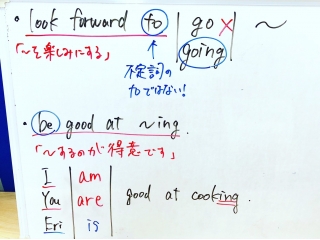 ・look forward to go × ～
「～を楽しみにする」 going
↑
不定詞の
toではない!
・be good at ～ing.
「～するのが得意です」
I am
You are good at cooking.
Eri is